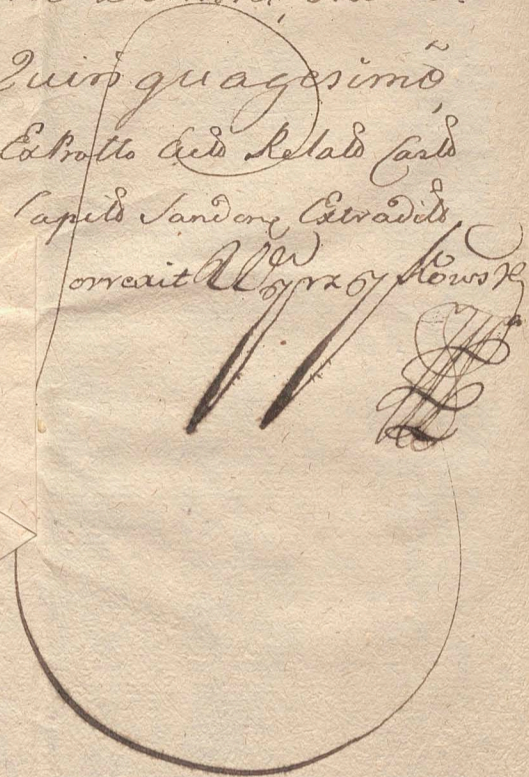 Quinquagesimo
Ex Protlo Actõ Relatõ Castõ
Capitõ Sandorię Extraditõ
orrexit Wyrzykowski